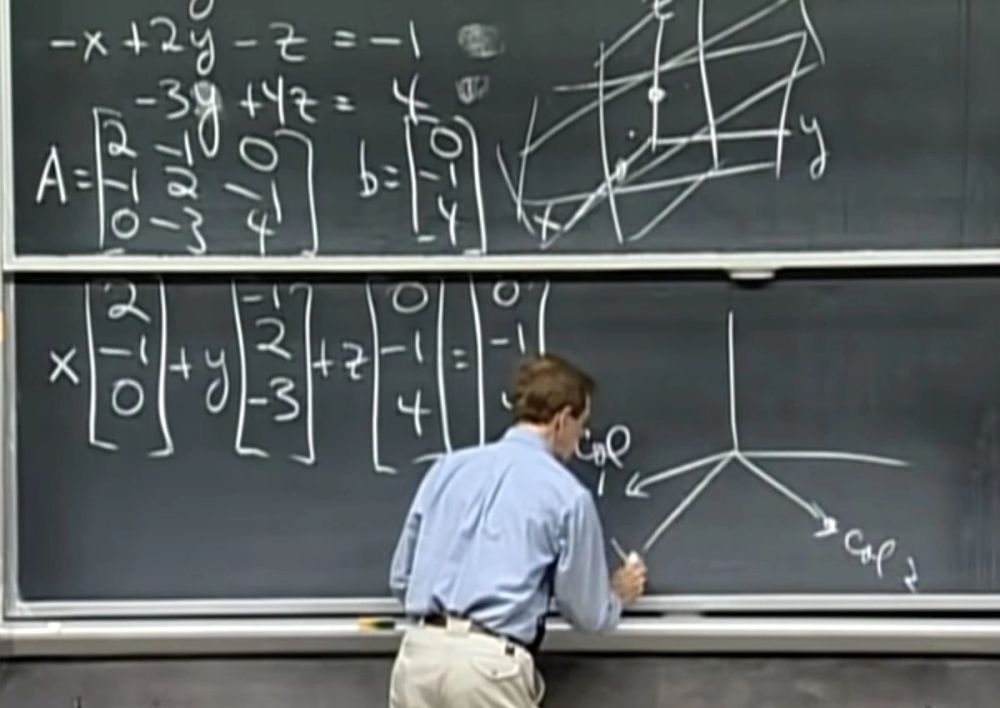 -x +2y - z = -1
-3y +4z = 4
A = [2 -1 0
-1 2 -1
0 -3 4]
b = [0
-1
4]
z
y
x
x [2 -1 0] + y [-1 2 -3] + z [0 -1 4] = [0 -1
Col 1
Col 2